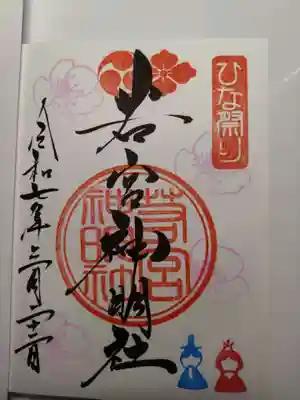 ひな祭り
若宮神明社
若宮神明社
令和七年